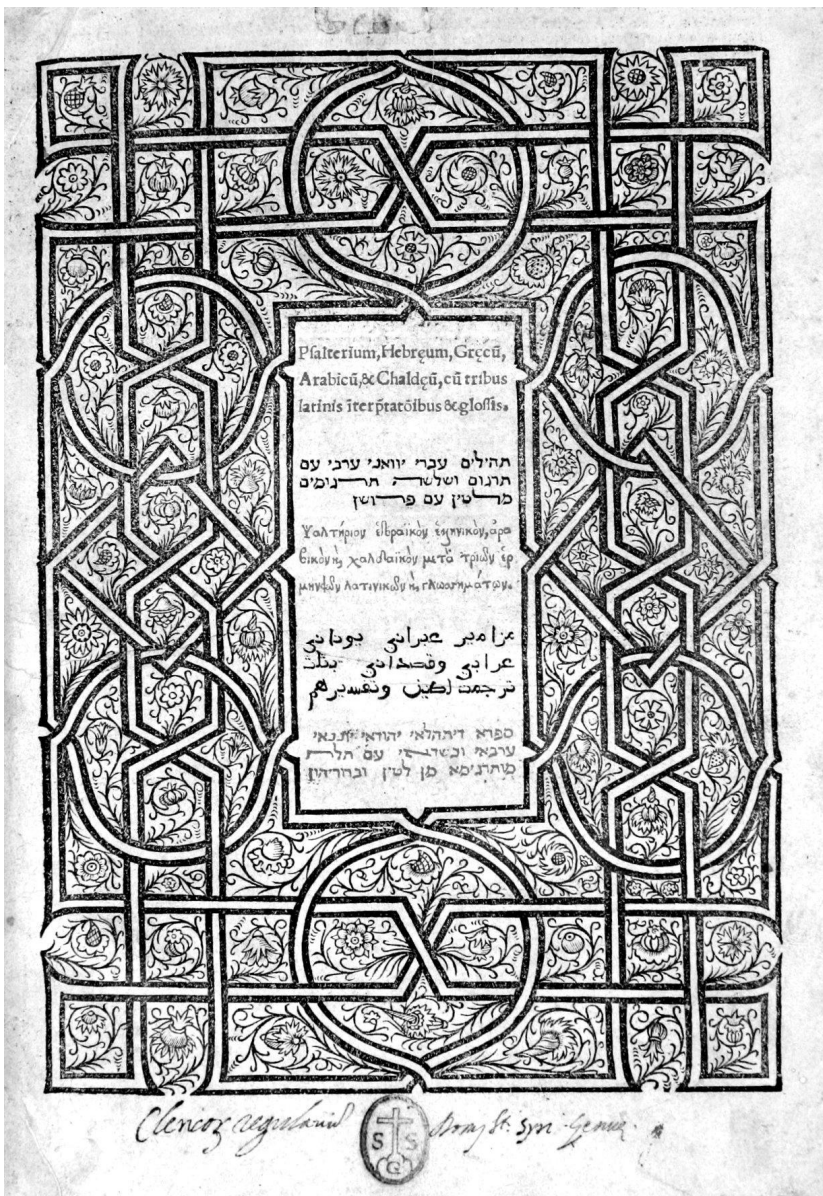 Psalterium, Hebręum, Gręcū,
Arabicū, & Chaldęū, cū tribus
latinis īterp̄tatōibus & glossis.
תהילים עברי יוואני ערבי עם
תרגום ושלשה תרגומים
מלטין עם פרושן
Ψαλτήριον ἑβραϊκὸν ἑλληνικὸν, ἀρα
βικὸν κỳ χαλδαϊκὸν μετὰ τριῶν ἑρ
λατινικῶν κỳ γλωσσημάτων.
مزامير عبراني يوناني
عرابي وقصداني بثلث
ترجمت لطين وتفسيرهم
ספרא דיתהלאי יהודאי
ערבאי עם תלת
מן לטין
Clericoȝ regulariū
S S
G
St. Syri Genue